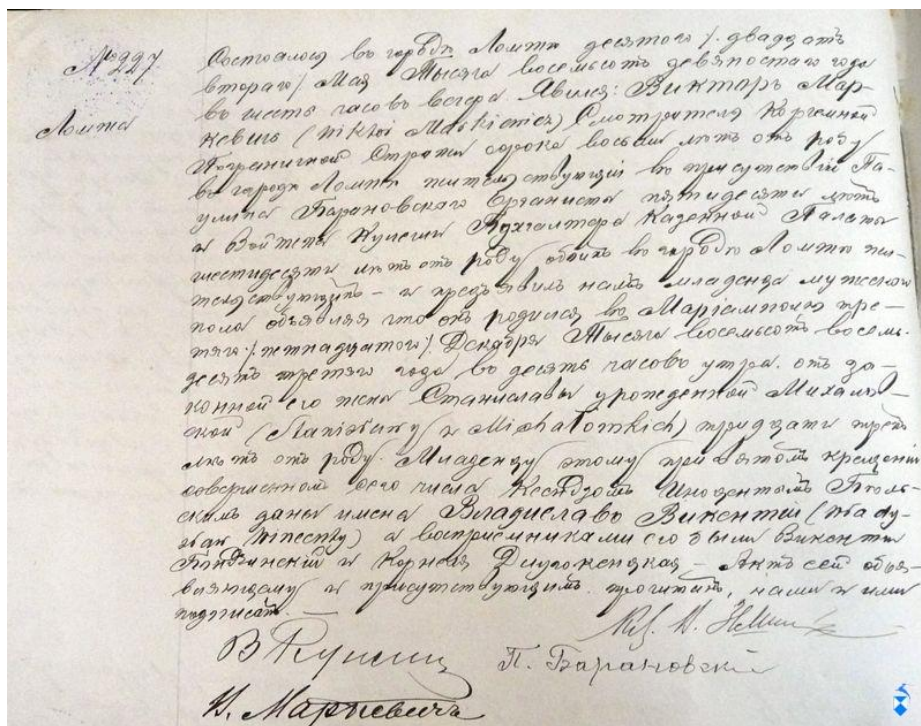 № 227
Ломжа
Состоялось въ городѣ Ломжѣ десятаго /. двадцать
втораго/ Мая Тысяча восемьсотъ девяностаго года
въ шесть часовъ вечера. Явился: Викторъ Мар-
кевичъ (Wiktor Markiewicz) Смотритель Корчемной
Пограничной Стражи сорока восьми лѣтъ отъ роду
въ городѣ Ломжѣ жительствующій въ присутствіи Па-
улина Барановскаго Органиста пятидесяти лѣтъ
и Бухгалтера Казенной Палаты
шестидесяти лѣтъ отъ роду обоихъ въ городѣ Ломжѣ жи-
тельствующихъ – и предъявилъ намъ младенца мужескаго
пола объявляя что онъ родился въ Маріамполѣ тре-
тяго /. пятнадцатаго/. Декабря Тысяча восемьсотъ восемь-
десятъ третяго года въ десять часовъ утра. отъ за-
конной его жены Станиславы урожденной Михалов-
ской (Stanisławy z Michałowskich) тридцати трехъ
лѣтъ отъ роду. Младенцу этому при святомъ крещеніи
совершенномъ сего числа Ксендзомъ
скимъ даны имена Владиславъ Викентій (Wła dy-
sław Wincenty) а воспріемниками его были Викентій
и Корнелія – Актъ сей объя-
вляющему и присутствующимъ прочитанъ, нами и ими
подписанъ. –
П. Барановскій
В. Маркевичъ